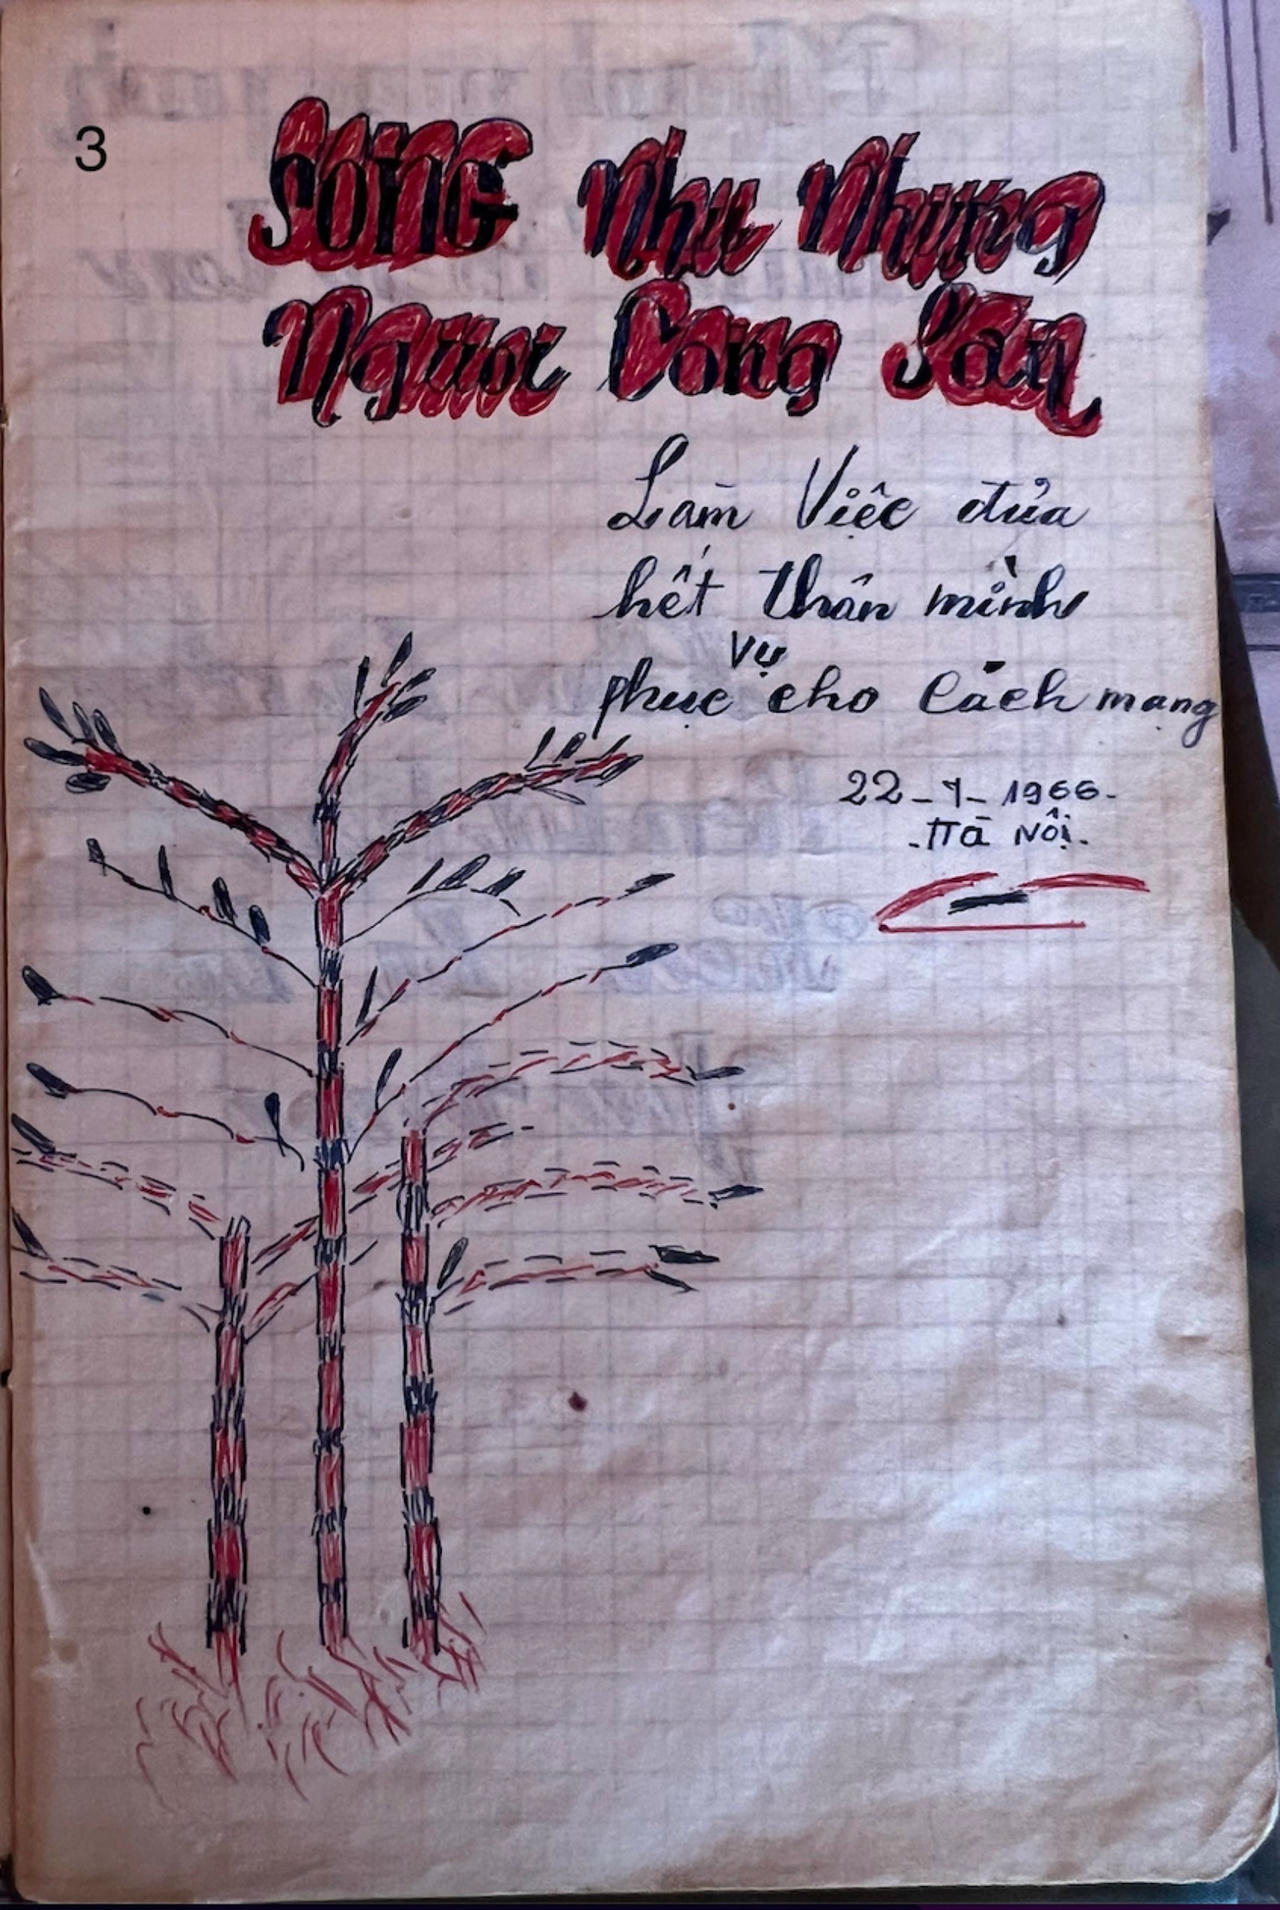 3
SONG Nhu Nhung
Nguoi Cong San
Làm Việc đưa
hết thân mình
vụ
phục cho Cách mạng
22-7-1966-
-Hà Nội-